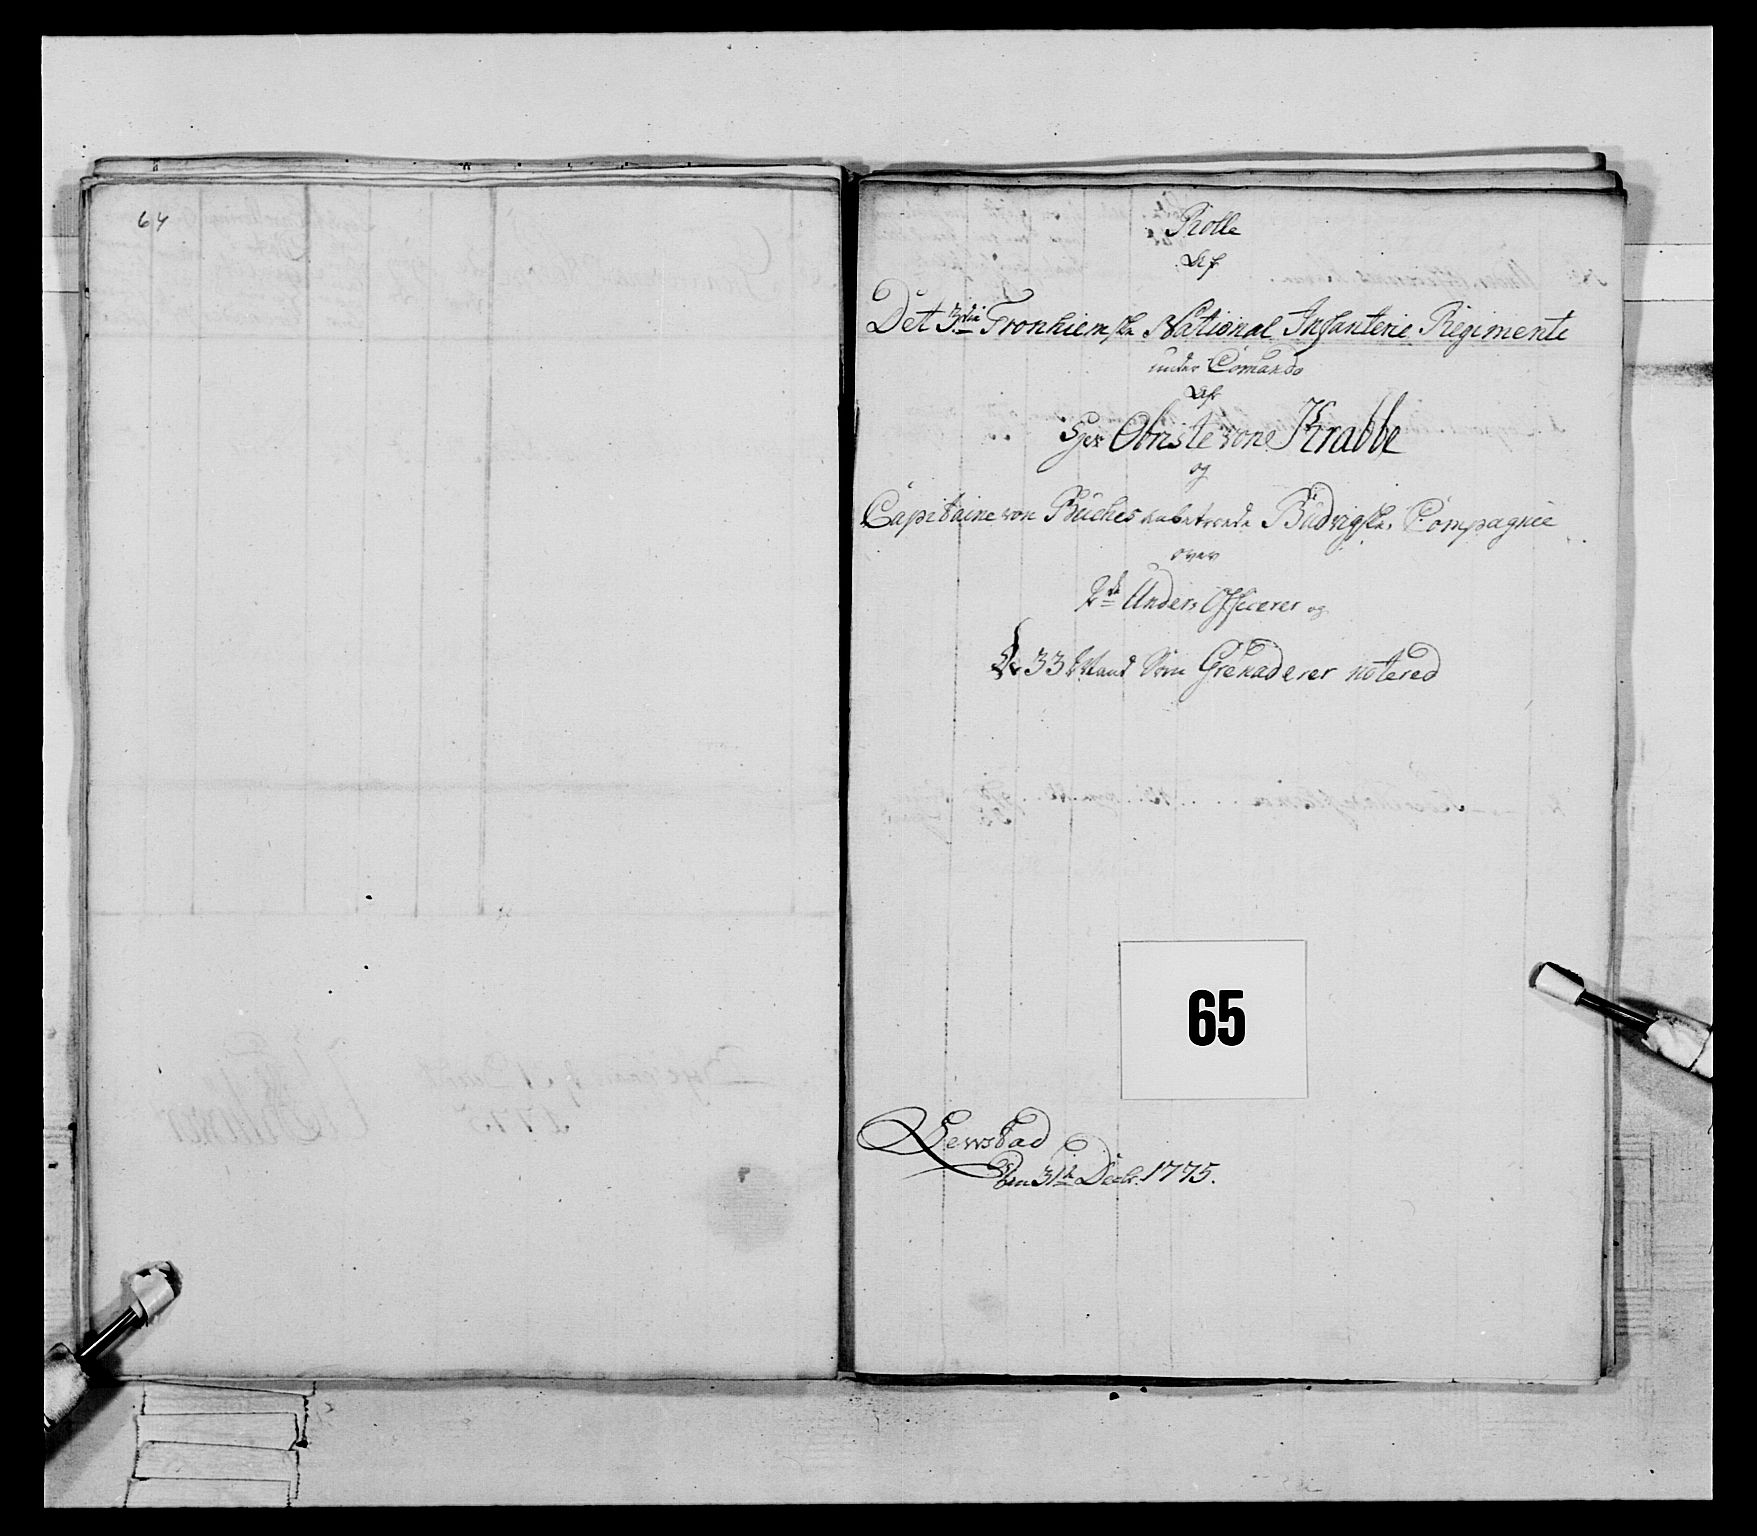 64
Rolle
Af
Det 3die Tronhiemske National Infanterie Regimente
under Comando
Af
Herr Obriste von Krabbe
og
Capitaine von Büches Compagnie
over
2de Under Officerer og
33 Mand Som Grenaderer notered
65
den 31te Decbr. 1775.